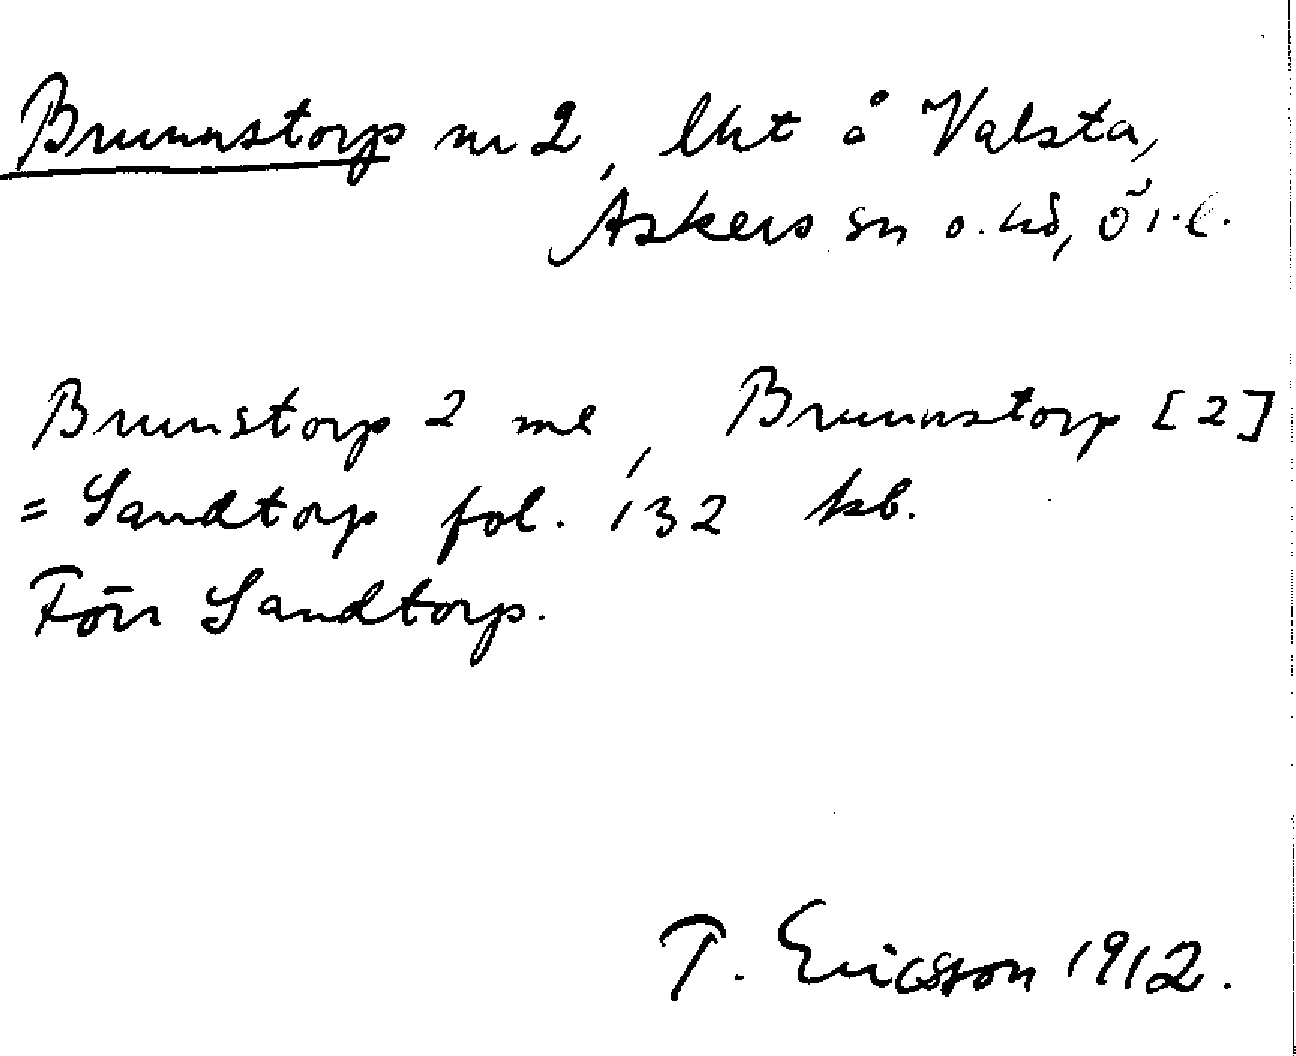 Brunnstorp nr 2, lht å Valsta,
Askers sn o. hd, Ör. l.
Brunstorp 2 me, Brunnstorp [2]
= Sandtorp fol. 132 kb.
Förr Sandtorp.
T. Ericsson 1912.